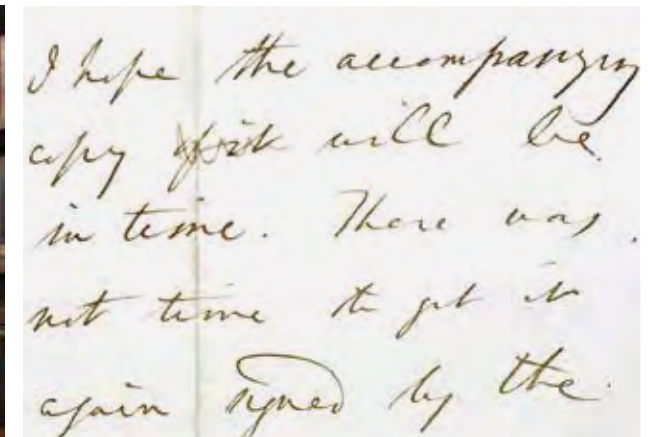 I hope the accompanying
copy of it will be
in time. There was
not time to get it
again signed by the